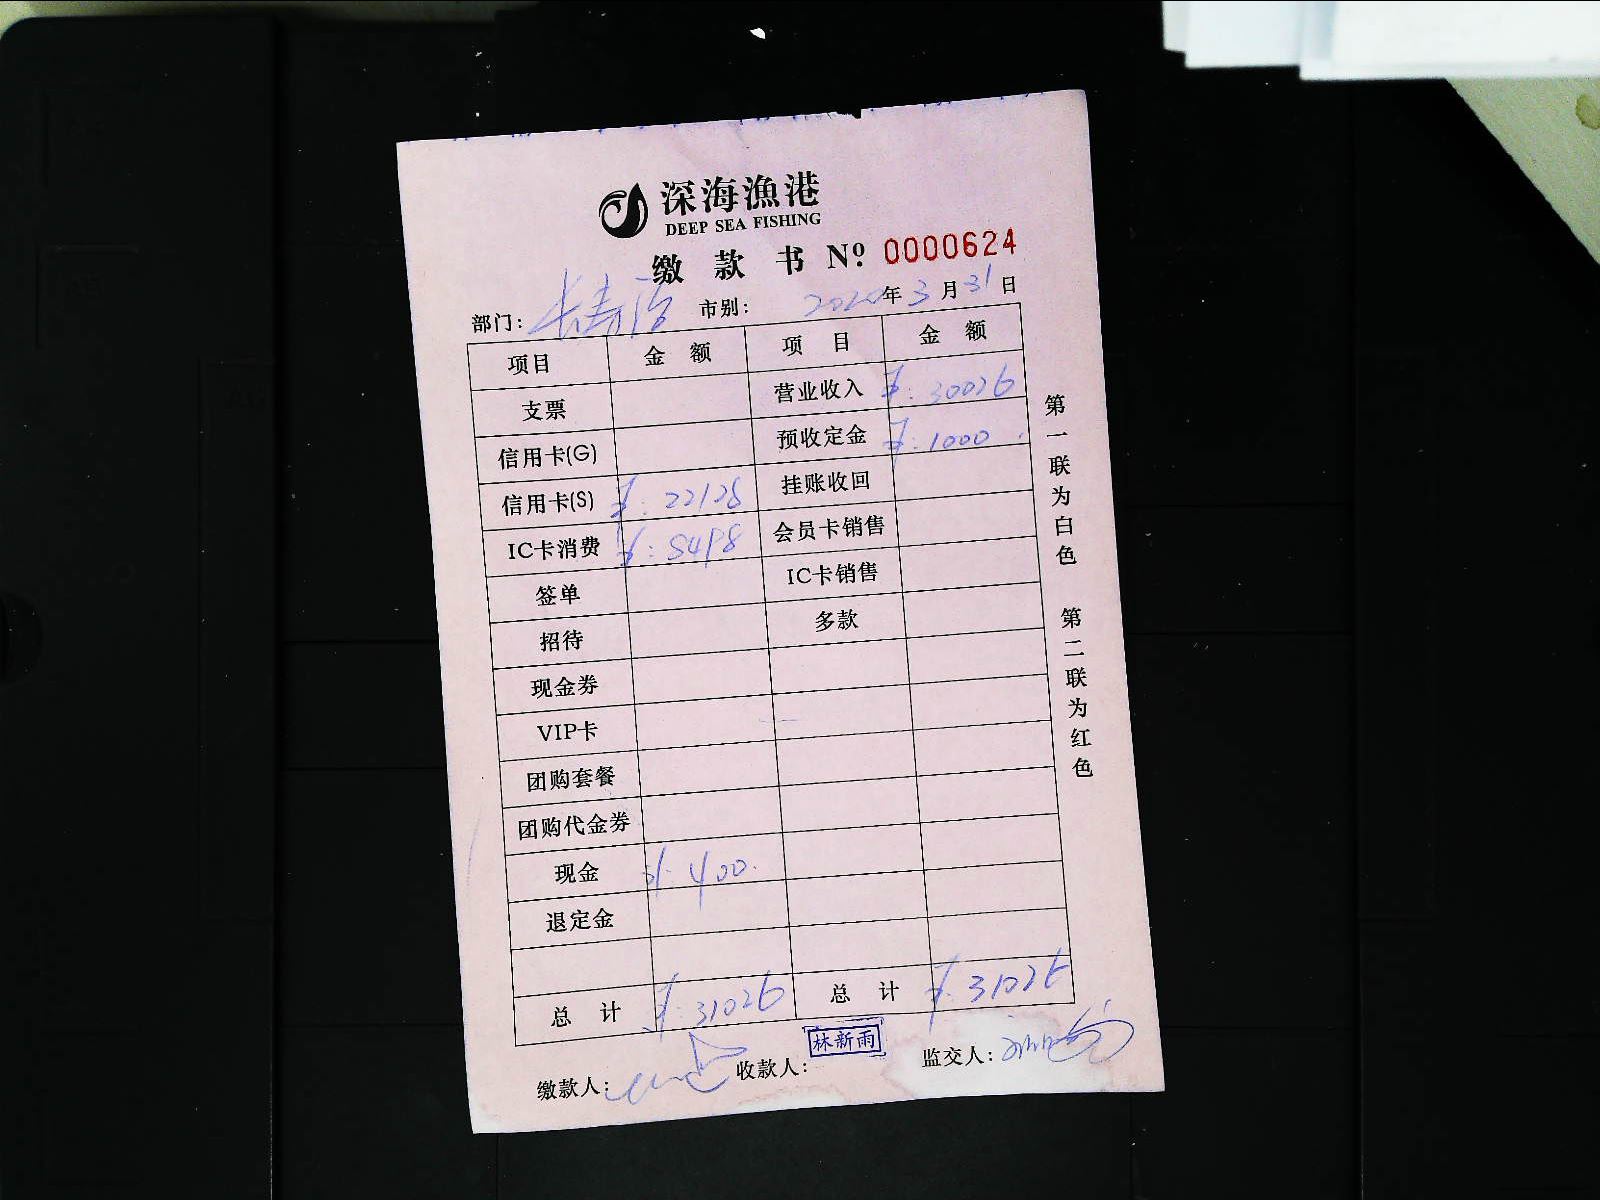 深海漁港
DEEP SEA FISHING
缴 款 书 Nº 0000624
部门: 长青 市别: 2020年3月31日
项目 金 额 项 目 金 额
支票 营业收入 ¥:30026
信用卡(G) 预收定金 ¥:1000
信用卡(S) ¥:22128 挂账收回
IC卡消费 ¥:8498 会员卡销售
签单 IC卡销售
招待 多款
现金券
VIP卡
团购套餐
团购代金券
现金 ¥:400.
退定金
总 计 ¥:31026 总 计 ¥:31026
缴款人: 收款人: 林新雨 监交人:
第一联为白色 第二联为红色